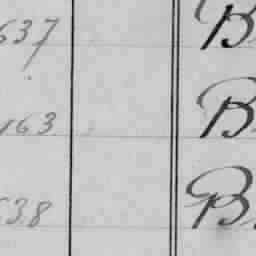 637 B
163 B
538 B